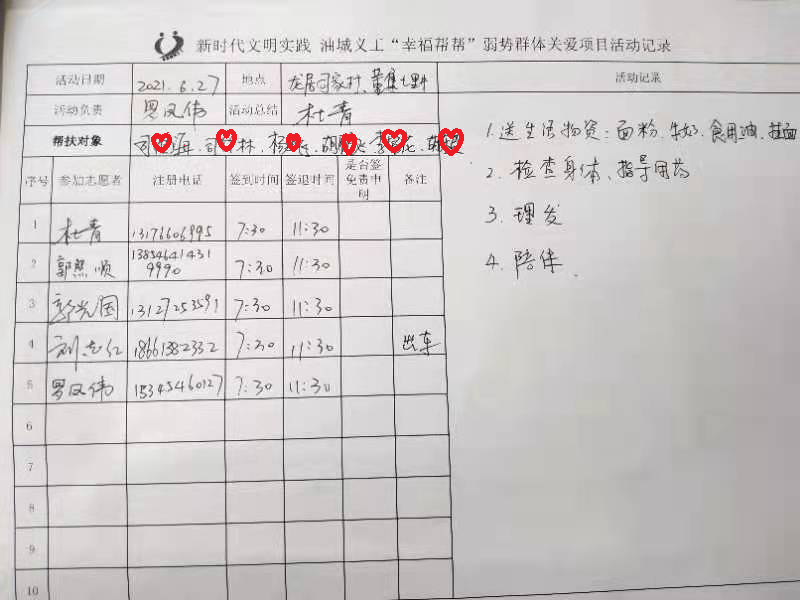 新时代文明实践 油城义工“幸福帮帮”弱势群体关爱项目活动记录
活动日期 2021.6.27 地点 龙居司家村、董集七里井
活动负责 罗汉伟 活动总结 杜青
帮扶对象
序号 参加志愿者 注册电话 签到时间 签退时间 是否签免责申明 备注
1 杜青 13176606995 7:30 11:30
2 郭熙顺 13854641431 9990 7:30 11:30
3 郭光国 13127253591 7:30 11:30
4 刘志仁 18661382332 7:30 11:30 出车
5 罗汉伟 15345460127 7:30 11:30
6
7
8
9
10
活动记录
1.送生活物资:面粉、牛奶、食用油、挂面
2.检查身体、指导用药
3.理发
4.陪伴.